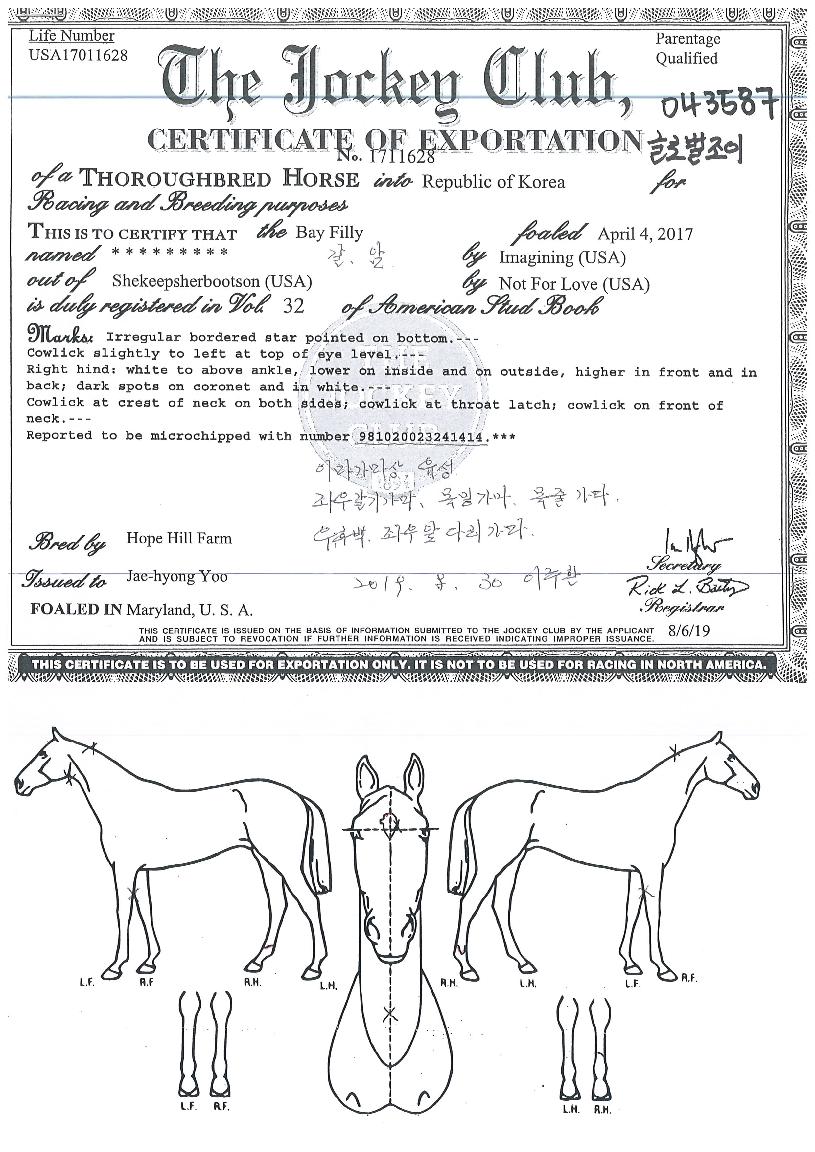 Life Number
USA17011628
Parentage
Qualified
The Jockey Club,
043587
CERTIFICATE OF EXPORTATION
글로벌조이
No. 1711628
of a THOROUGHBRED HORSE into Republic of Korea for
Racing and Breeding purposes
THIS IS TO CERTIFY THAT the Bay Filly foaled April 4, 2017
named * * * * * * * * * 갈, 암 by Imagining (USA)
out of Shekeepsherbootson (USA) by Not For Love (USA)
is duly registered in Vol. 32 of American Stud Book
Marks: Irregular bordered star pointed on bottom.---
Cowlick slightly to left at top of eye level.---
Right hind: white to above ankle, lower on inside and on outside, higher in front and in
back; dark spots on coronet and in white.---
Cowlick at crest of neck on both sides; cowlick at throat latch; cowlick on front of
neck.---
Reported to be microchipped with number 981020023241414.***
THE
JOCKEY
CLUB
1894
이마가마상 유성
좌우갈기가마, 목일가마, 목줄가마.
우후백. 좌우앞다리가마.
Bred by Hope Hill Farm
Secretary
Issued to Jae-hyong Yoo
2019. 8. 30 이주환
Registrar
FOALED IN Maryland, U. S. A.
THIS CERTIFICATE IS ISSUED ON THE BASIS OF INFORMATION SUBMITTED TO THE JOCKEY CLUB BY THE APPLICANT
AND IS SUBJECT TO REVOCATION IF FURTHER INFORMATION IS RECEIVED INDICATING IMPROPER ISSUANCE.
8/6/19
THIS CERTIFICATE IS TO BE USED FOR EXPORTATION ONLY. IT IS NOT TO BE USED FOR RACING IN NORTH AMERICA.
L.F. R.F R.H. L.H. R.H. L.H. L.F. R.F.
L.F. R.F. L.H. R.H.